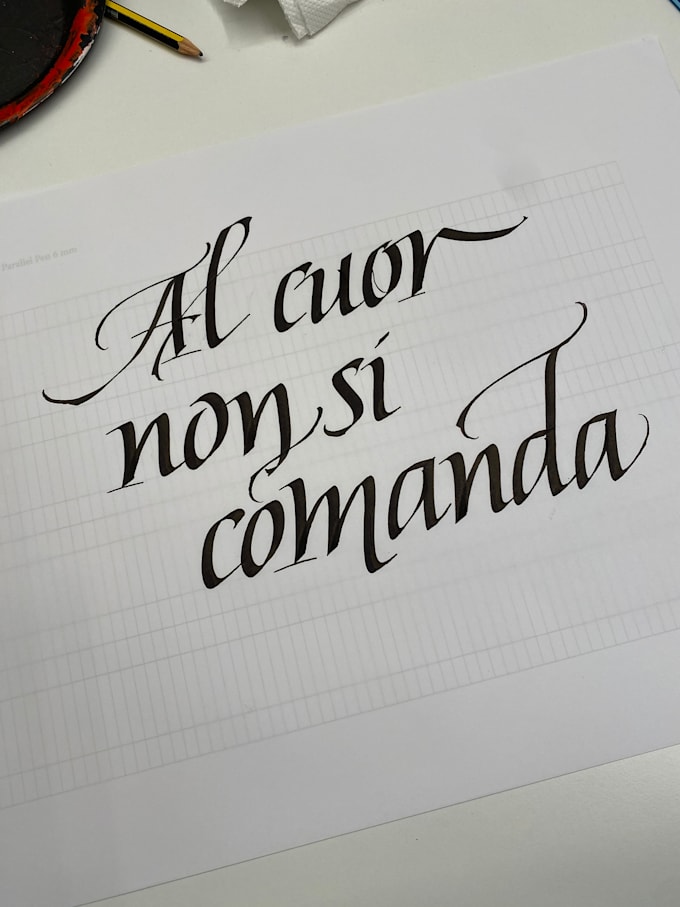 Parallel Pen 6 mm
Al cuor
non si
comanda